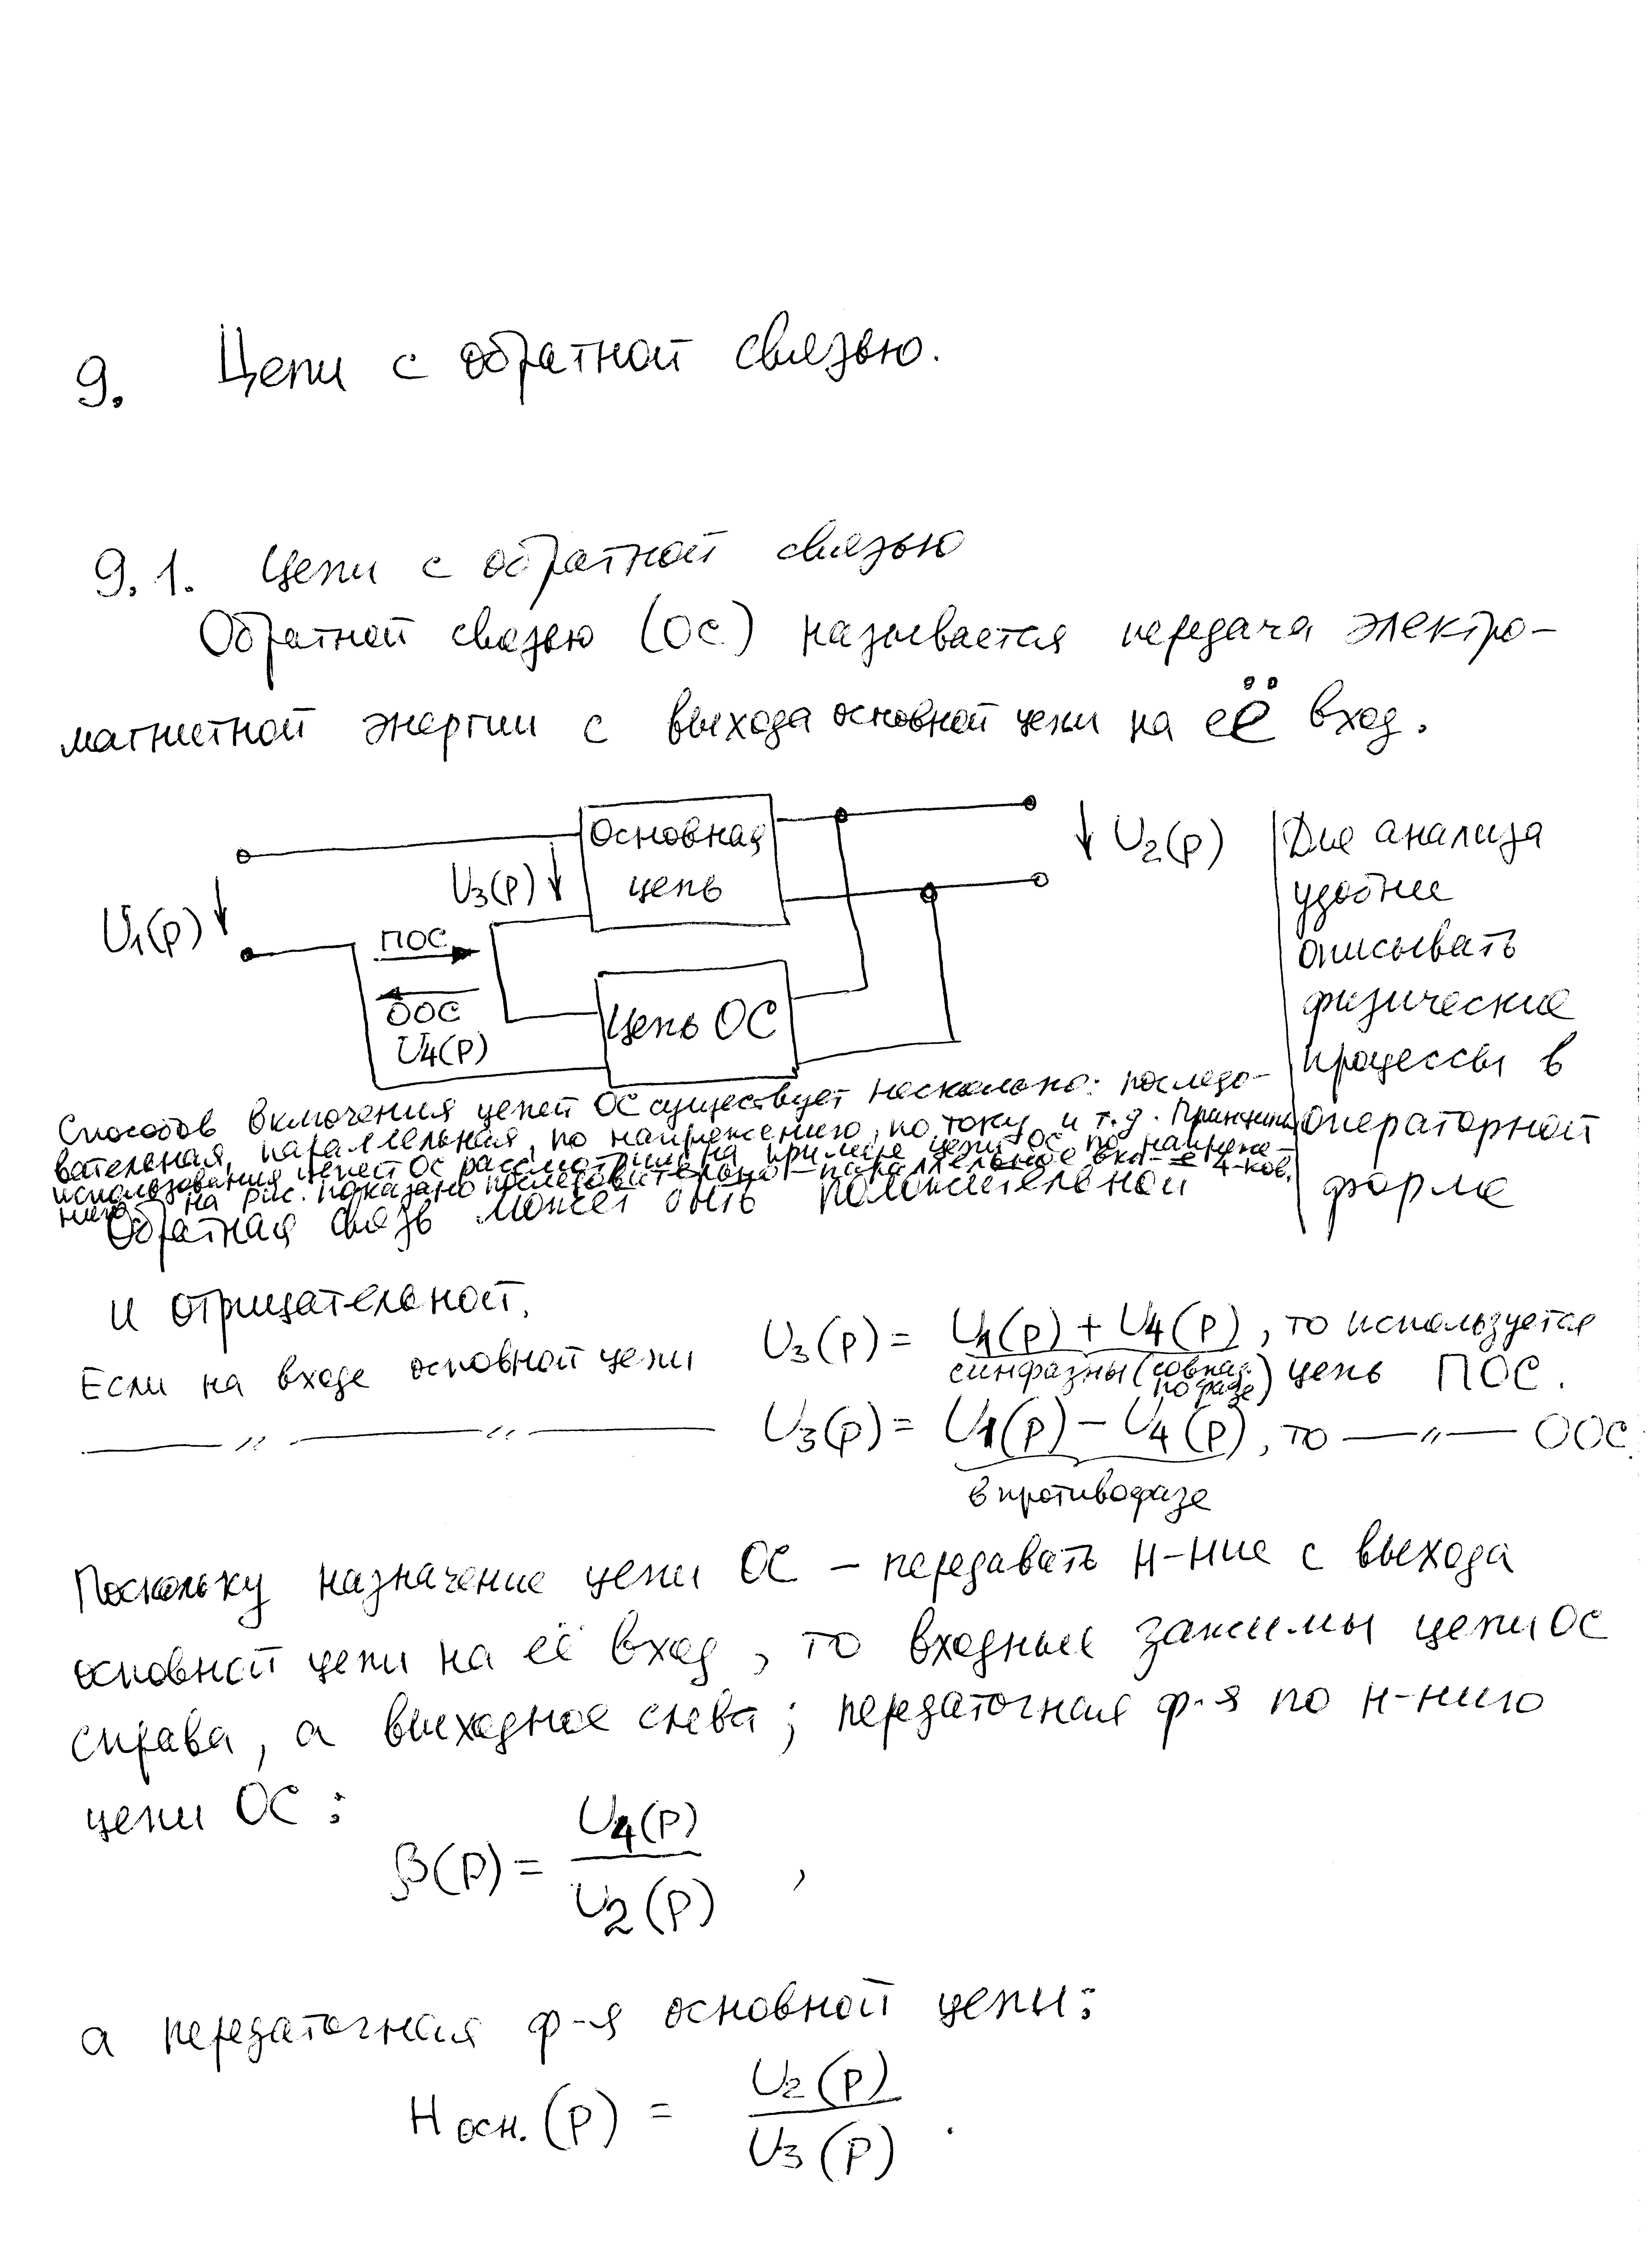 9. Цепи с обратной связью.
9.1. Цепи с обратной связью
Обратной связью (ОС) называется передача электро-
магнитной энергии с выхода основной цепи на её вход.
Основная
цепь
U₃(p)
U₁(p)
U₂(p)
ПОС
ООС
U₄(p)
Цепь ОС
Для анализа
удобнее
описывать
физические
процессы в
операторной
форме
Способов включения цепей ОС существует несколько: последо-
вательная, параллельная, по напряжению, по току и т.д. Принципы
использования цепей ОС рассмотрим на примере цепи ОС по напряже-
нию. На рис. показано последовательно-параллельное вкл-е 4-ков.
Обратная связь может быть положительной
и отрицательной.
Если на входе основной цепи U₃(p) = U₁(p) + U₄(p), то используется
синфазны (совпад. по фазе) цепь ПОС.
— " — " — U₃(p) = U₁(p) − U₄(p), то — " — ООС.
в противофазе
Поскольку назначение цепи ОС – передавать н-ние с выхода
основной цепи на её вход, то входные зажимы цепи ОС
справа, а выходные слева; передаточная ф-я по н-нию
цепи ОС:
β(p) = U₄(p) / U₂(p) ,
а передаточная ф-я основной цепи:
H осн.(p) = U₂(p) / U₃(p) .